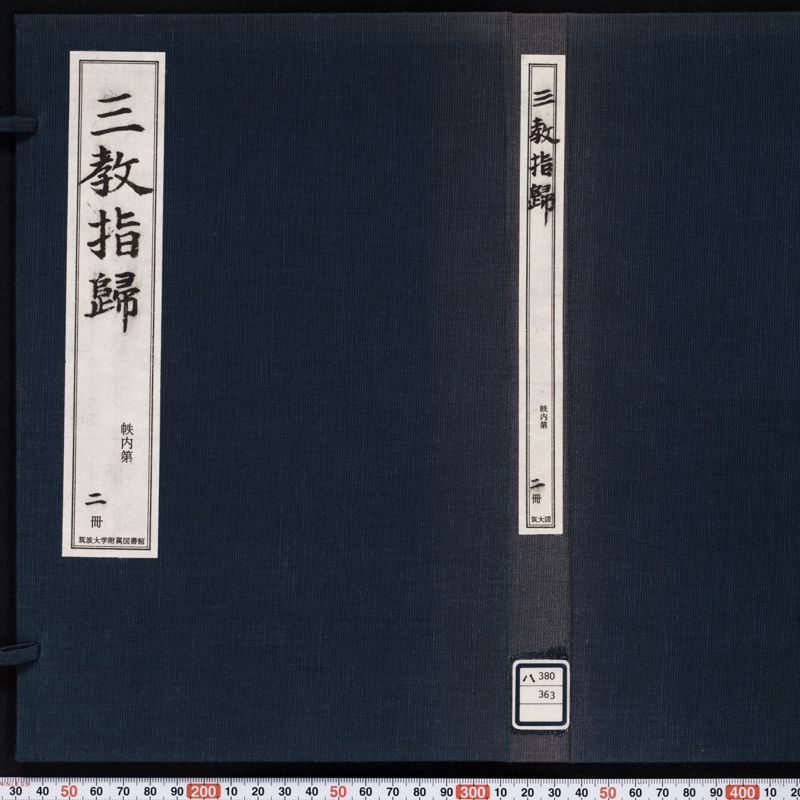 三教指歸
帙内第
二冊
筑波大学附属図書館
三教指歸
帙内第
二冊
筑大図
ハ 380
363
30 40 50 60 70 80 90 200 10 20 30 40 50 60 70 80 90 300 10 20 30 40 50 60 70 80 90 400 10 20